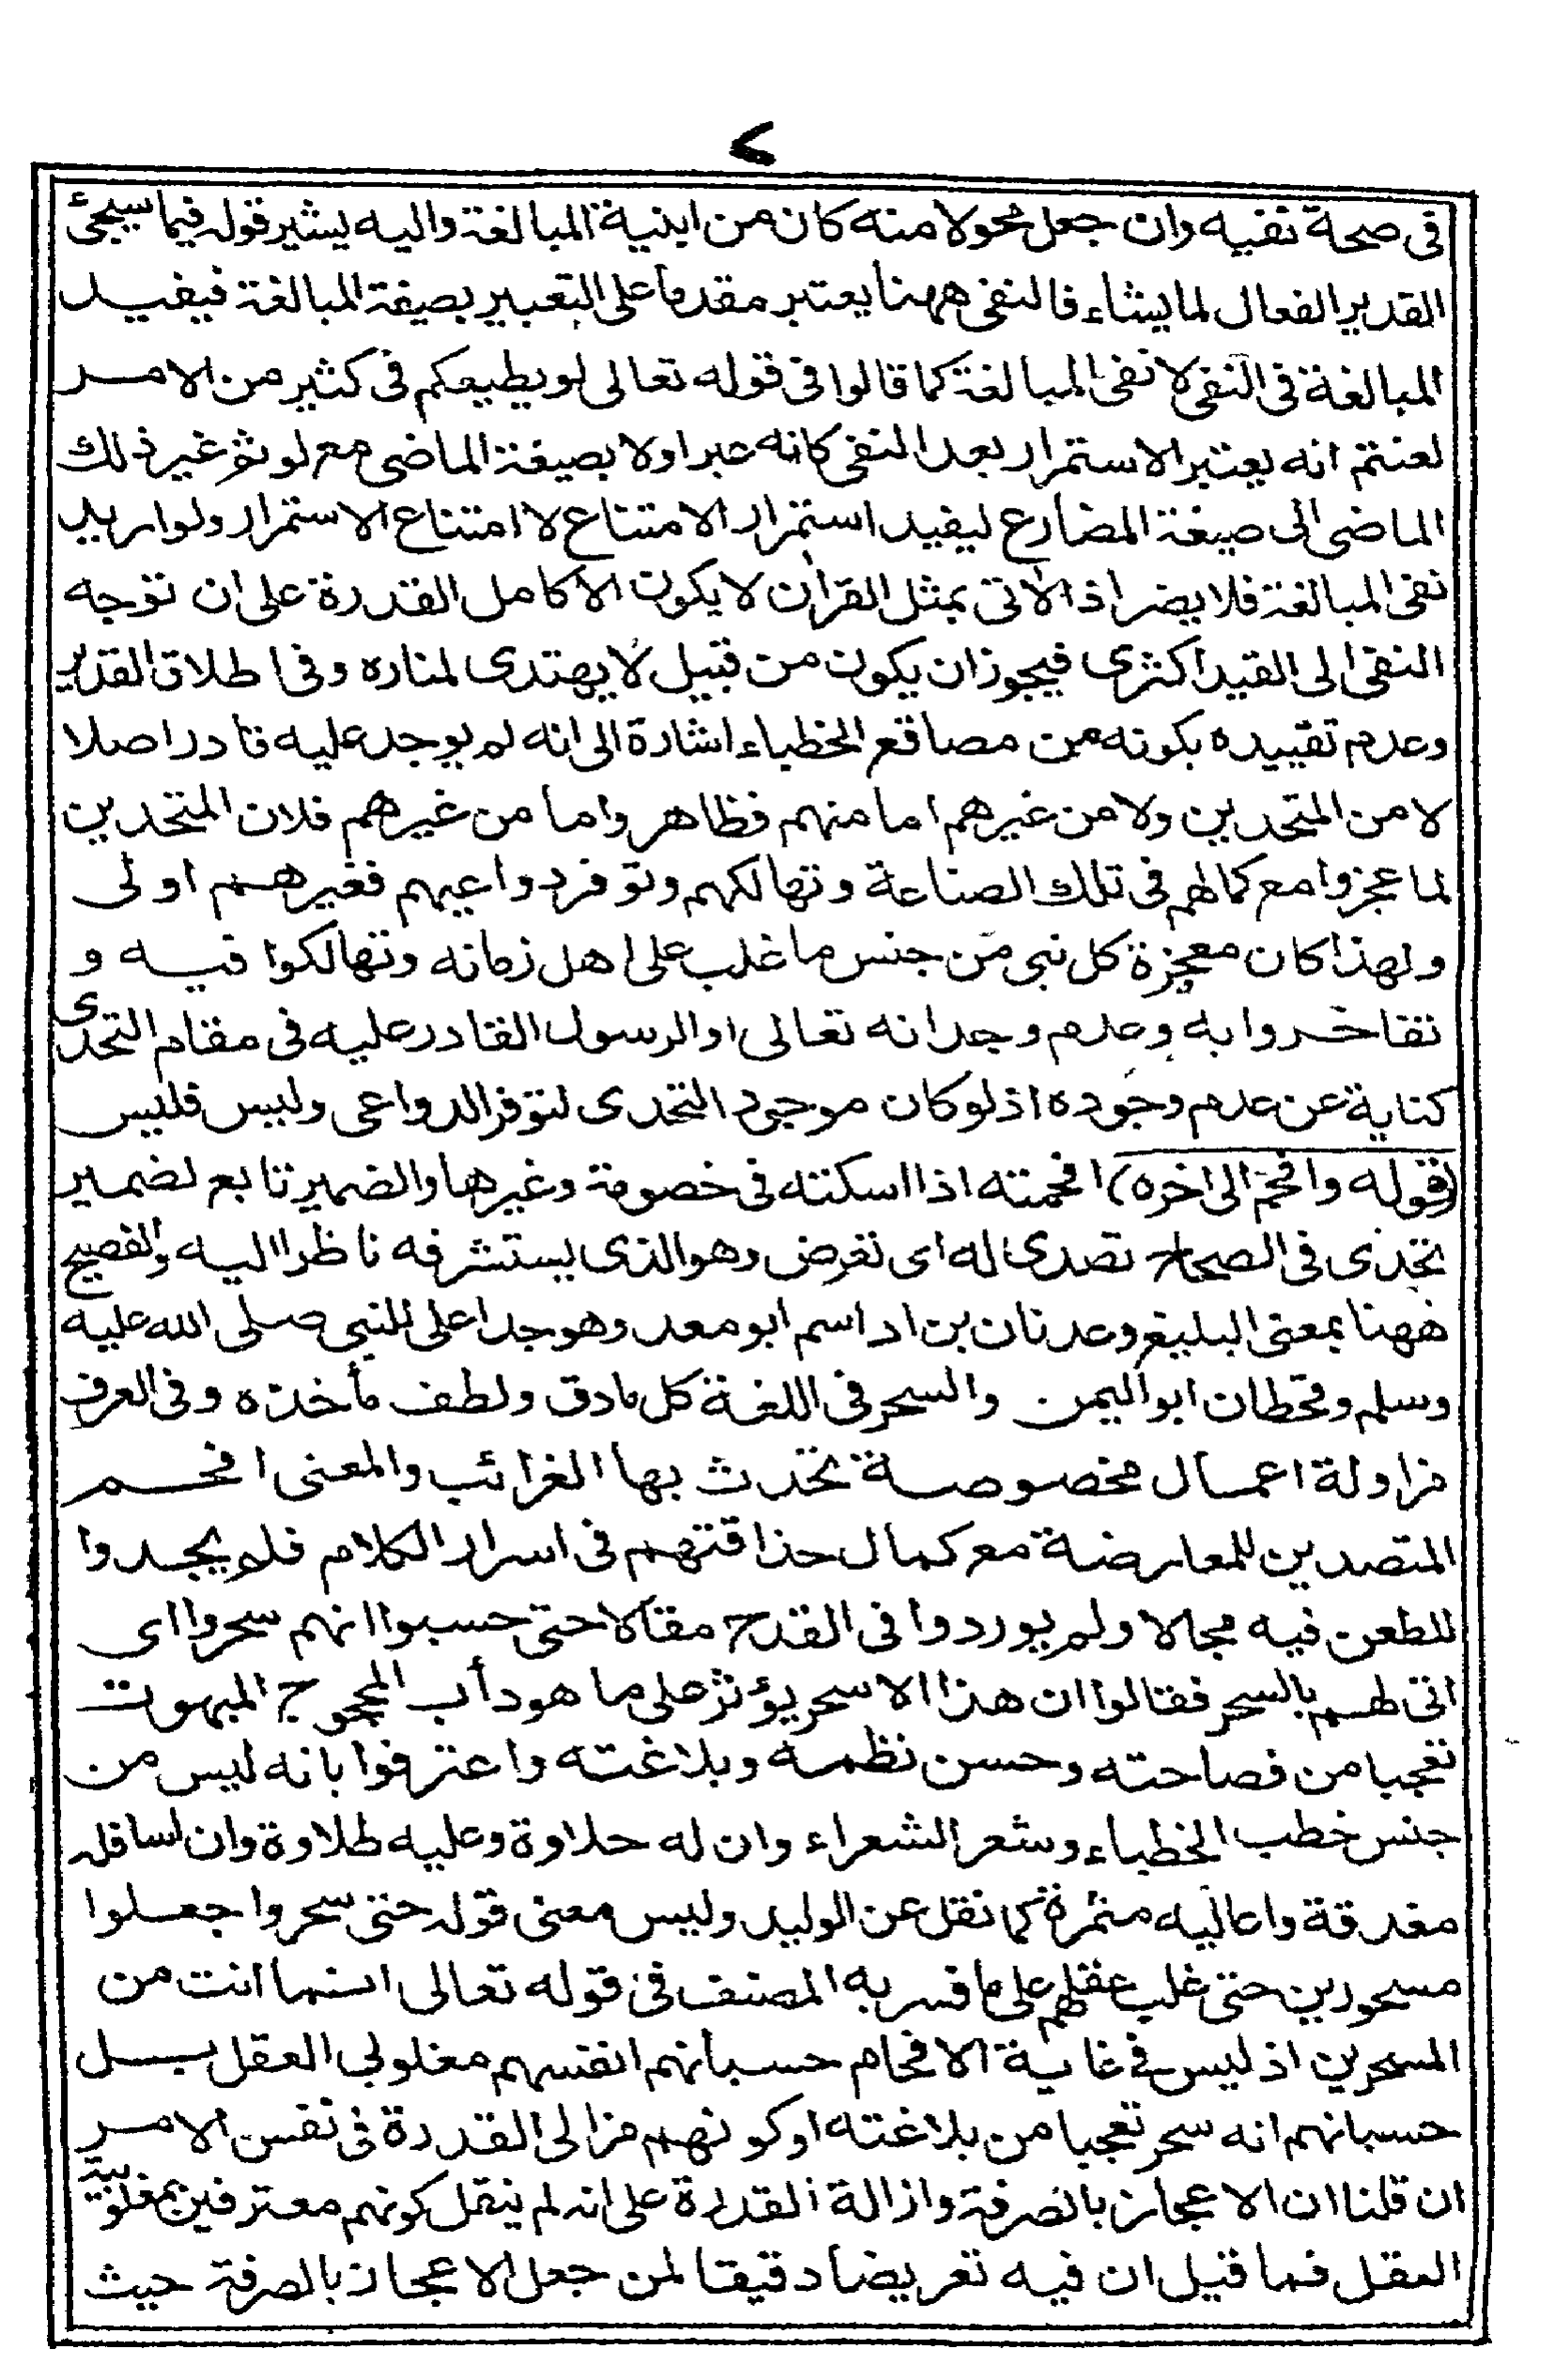 ٧
فى صحة نفيه وان جعل محولا منه كان من ابنية المبالغة واليه يشير قوله فيما سيجئ
القدير الفعال لما يشاء فالنفى ههنا يعتبر مقدما على التعبير بصيغة المبالغة فيفيد
المبالغة فى النفى لا نفى المبالغة كما قالوا فى قوله تعالى لو يطيعكم فى كثير من الامر
لعنتم انه يعتبر الاستمرار بعد النفى كانه عبر اولا بصيغة الماضى مع لو ثم غير ذلك
الماضى الى صيغة المضارع ليفيد استمرار الامتناع لا امتناع الاستمرار ولو اريد
نفى المبالغة فلا يضر اذ الاتى بمثل القران لا يكون الا كامل القدرة على ان توجه
النفى الى القيد اكثرى فيجوز ان يكون من قبيل لا يهتدى لمناره وفى اطلاق القدير
وعدم تقييده بكونه من مصاقع الخطباء اشارة الى انه لم يوجد عليه قادر اصلا
لا من المتحدين ولا من غيرهم اما منهم فظاهر واما من غيرهم فلان المتحدين
لما عجزوا مع كمالهم فى تلك الصناعة وتهالكهم وتوفر دواعيهم فغيرهم اولى
ولهذا كان معجزة كل نبى من جنس ما غلب على اهل زمانه وتهالكوا فيه و
تفاخروا به وعدم وجدانه تعالى او الرسول القادر عليه فى مقام التحدى
كناية عن عدم وجوده اذ لو كان موجود التحدى لتوفر الدواعى وليس فليس
(قوله وافحم الى اخره) افحمته اذا اسكتته فى خصومة وغيرها والضمير تابع لضمير
تحدى فى الصحاح تصدى له اى تعرض وهو الذى يستشرفه ناظرا اليه والفصيح
ههنا بمعنى البليغ وعدنان بن اد اسم ابو معد وهو جد اعلى للنبى صلى الله عليه
وسلم وقحطان ابو اليمن والسحر فى اللغة كل ما دق ولطف مأخذه وفى العرف
مزاولة اعمال مخصوصة تحدث بها الغرائب والمعنى افحم
المتصدين للمعارضة مع كمال حذاقتهم فى اسرار الكلام فلم يجدوا
للطعن فيه مجالا ولم يوردوا فى القدح مقالا حتى حسبوا انهم سحروا اى
اتى لهم بالسحر فقالوا ان هذا الا سحر يؤثر على ما هو دأب المحجوج المبهوت
تعجبا من فصاحته وحسن نظمه وبلاغته واعترفوا بانه ليس من
جنس خطب الخطباء وشعر الشعراء وان له حلاوة وعليه طلاوة وان اسافله
مغدقة واعاليه مثمرة كما نقل عن الوليد وليس معنى قوله حتى سحروا جعلوا
مسحورين حتى غلب عقلهم على ما فسر به المصنف فى قوله تعالى انما انت من
المسحرين اذ ليس فى غاية الافحام حسبانهم انفسهم مغلوبى العقل بل
حسبانهم انه سحر تعجبا من بلاغته او كونهم مزالى القدرة فى نفس الامر
ان قلنا ان الاعجاز بالصرفة وازالة القدرة على انه لم ينقل كونهم معترفين بمغلوبية
العقل فما قيل ان فيه تعريضا دقيقا لمن جعل الاعجاز بالصرفة حيث